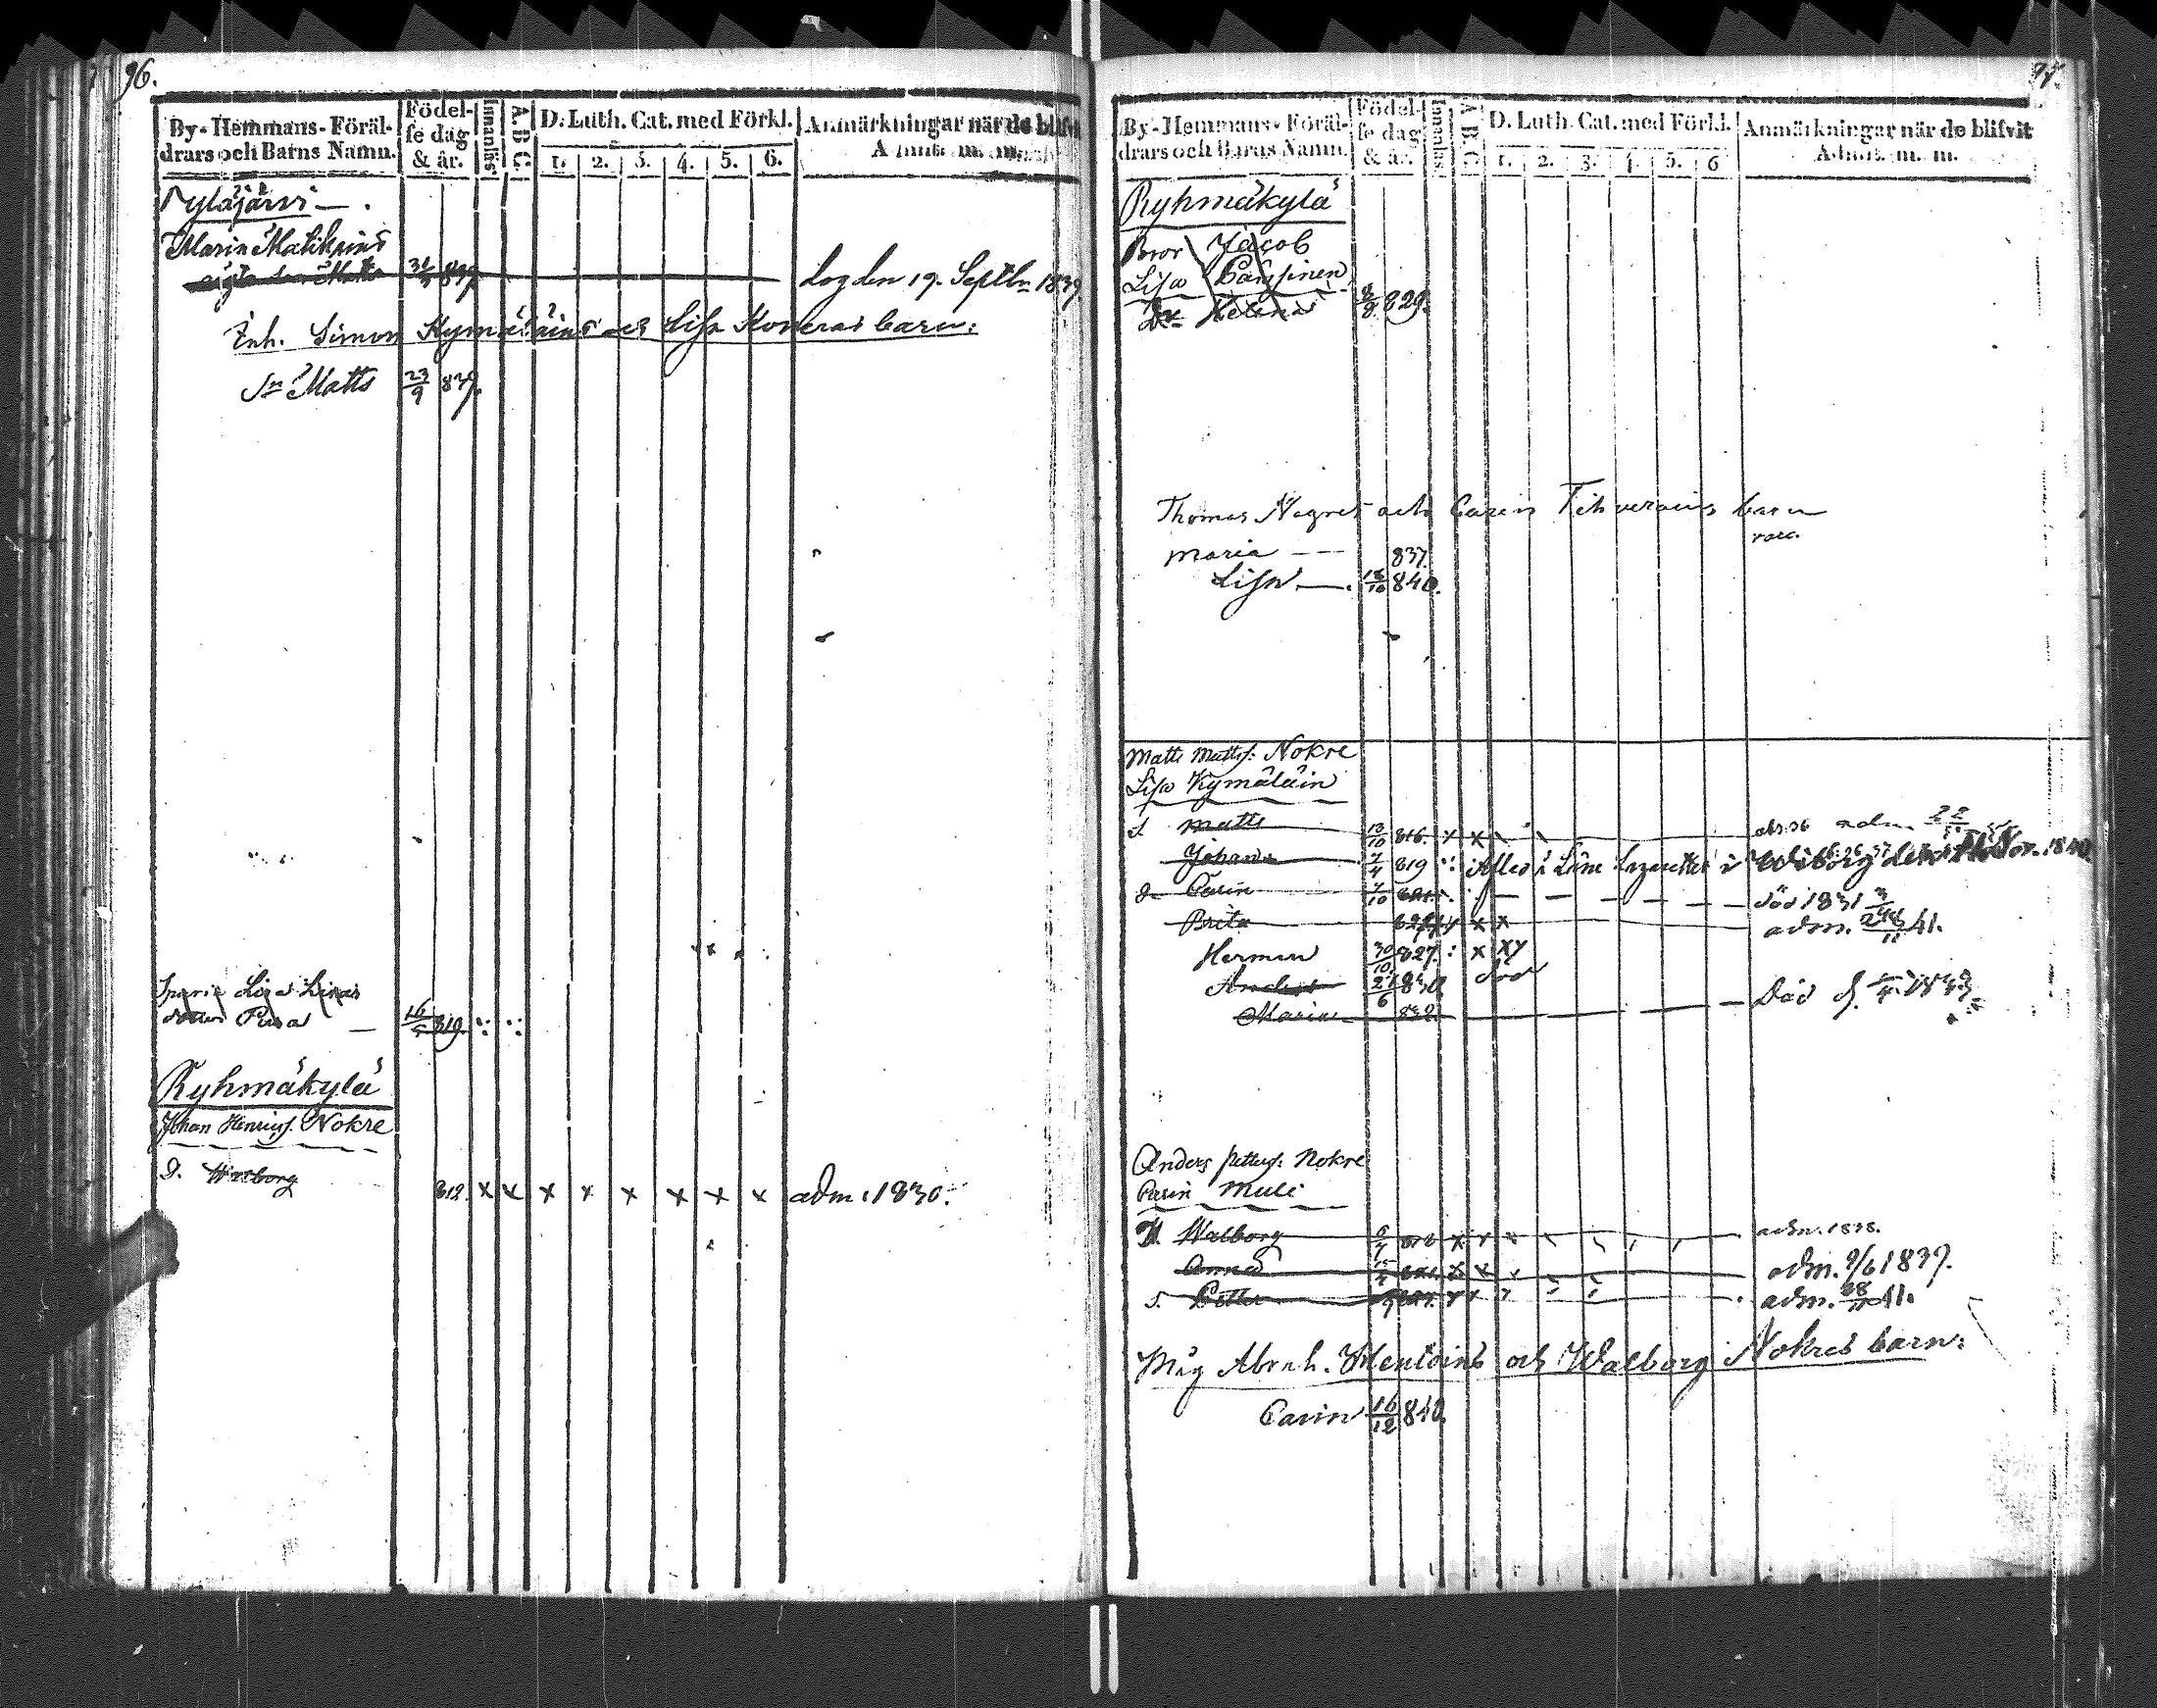 96.
By-Hemmans-Föräl-
drars och Barns Namn.
Födel-
se dag
& år.
Innanläs
A B C.
D. Luth. Cat. med Förkl.
1. 2. 3. 4. 5. 6.
Anmärkningar när de blifvit
Admit. m. m.
Pyläjärvi
Marin Matikains
31/5 839.
dog den 19. Septbr 1839.
Inh. Simon Kymäläins och Lisa Koveras barn:
Sn Matts 23/9 839.
Pusa 819.
Ryhmäkylä
Johan Henrics. Nokre
D. Walborg 812. x x x x x x x x adm: 1830.
97.
By-Hemmans-Föräl-
drars och Barns Namn.
Födel-
se dag
& år.
Innanläs.
A. B. C.
D. Luth. Cat. med Förkl.
1. 2. 3. 4. 5. 6
Anmärkningar när de blifvit
Admit. m. m.
Ryhmäkylä
Bror Jacob
Lisa
Dr Helena 829.
Thomas Nogres och Carin Tihverains barn
Maria 837.
Lisa 840.
Matts Matts: Nokre
Lisa Kymäläin
S Matts 13/10 816. x x adm.
Johan 7/4 819 Afled i Läne Lazarettet i Wiborg den Nov. 1840.
D Carin 7/10 död 1831
Brita x x adm. 41.
Herman 30/10 827. x xy
Anders 21/6 830 död
Maria 832 Död d. 1833.
Anders Petters: Nokre
Carin Muli
D. Walborg adm. 1838.
Anna adm. 9/6 1839.
S. Petter adm. 28/11 41.
Måg Abrah. och Walborg Nokres barn:
Carin 16/12 840.